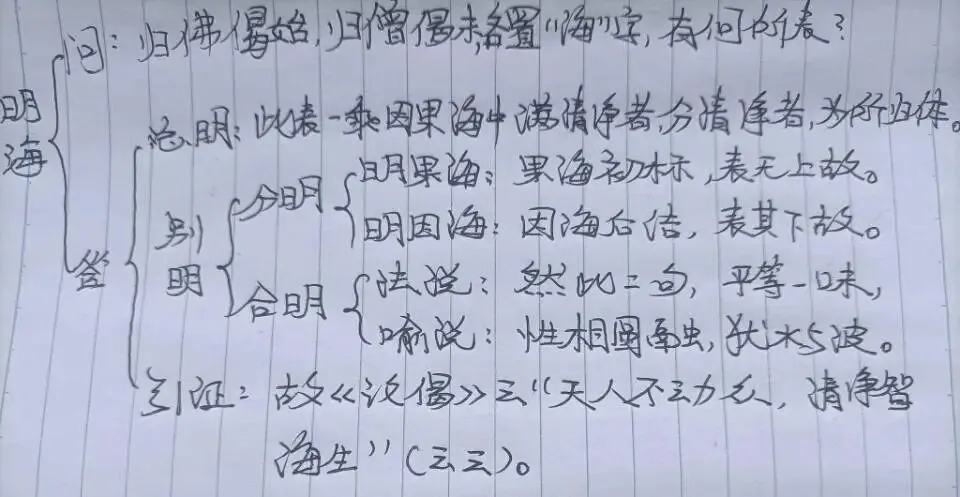 问：归佛偈始，归僧偈末，各置“海”字，有何所表？
明海
总明：此表一乘因果海中满清净者，分清净者，为所归体。
明果海：果海初标，表无上故。
分明
明因海：因海后结，表其下故。
别明
答
合明
法说：然此二句，平等一味，
喻说：性相圆融，犹水与波。
引证：故《论偈》云“天人不动众，清净智
海生”（云云）。